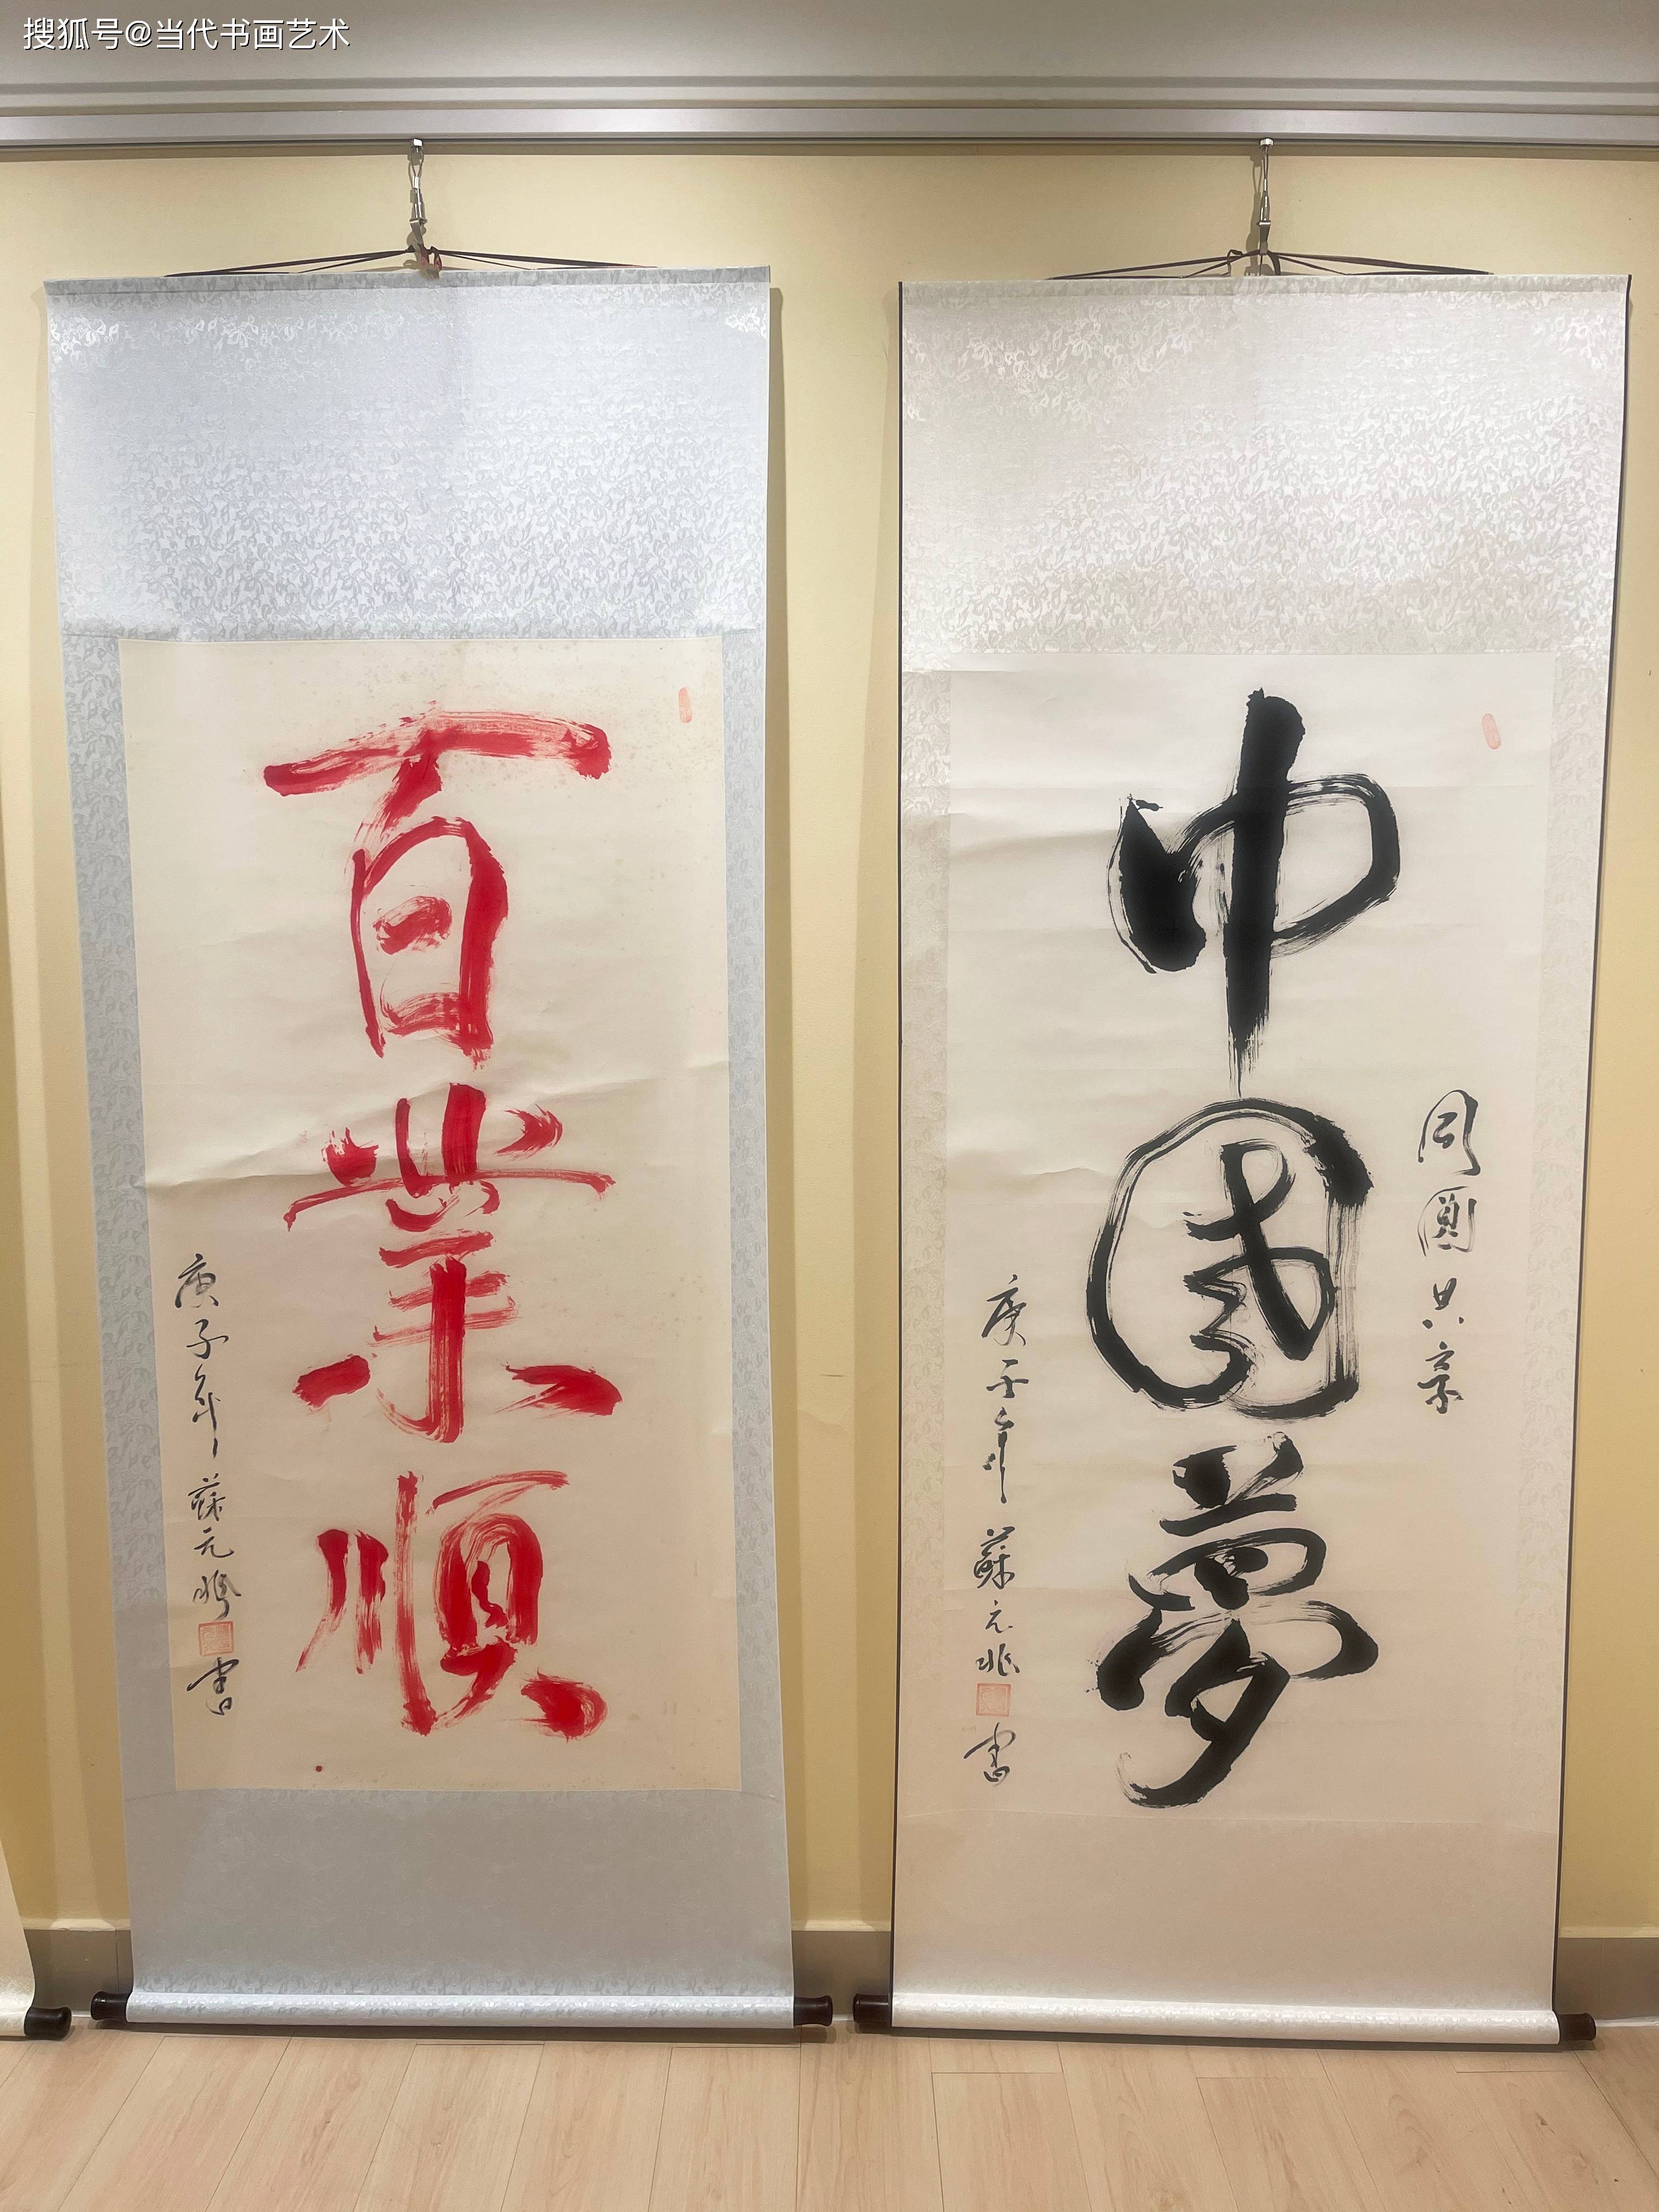 搜狐号@当代书画艺术
百業順
庚子年
蘇元兆
書
同圓共享
中國夢
庚子年
蘇元兆
書